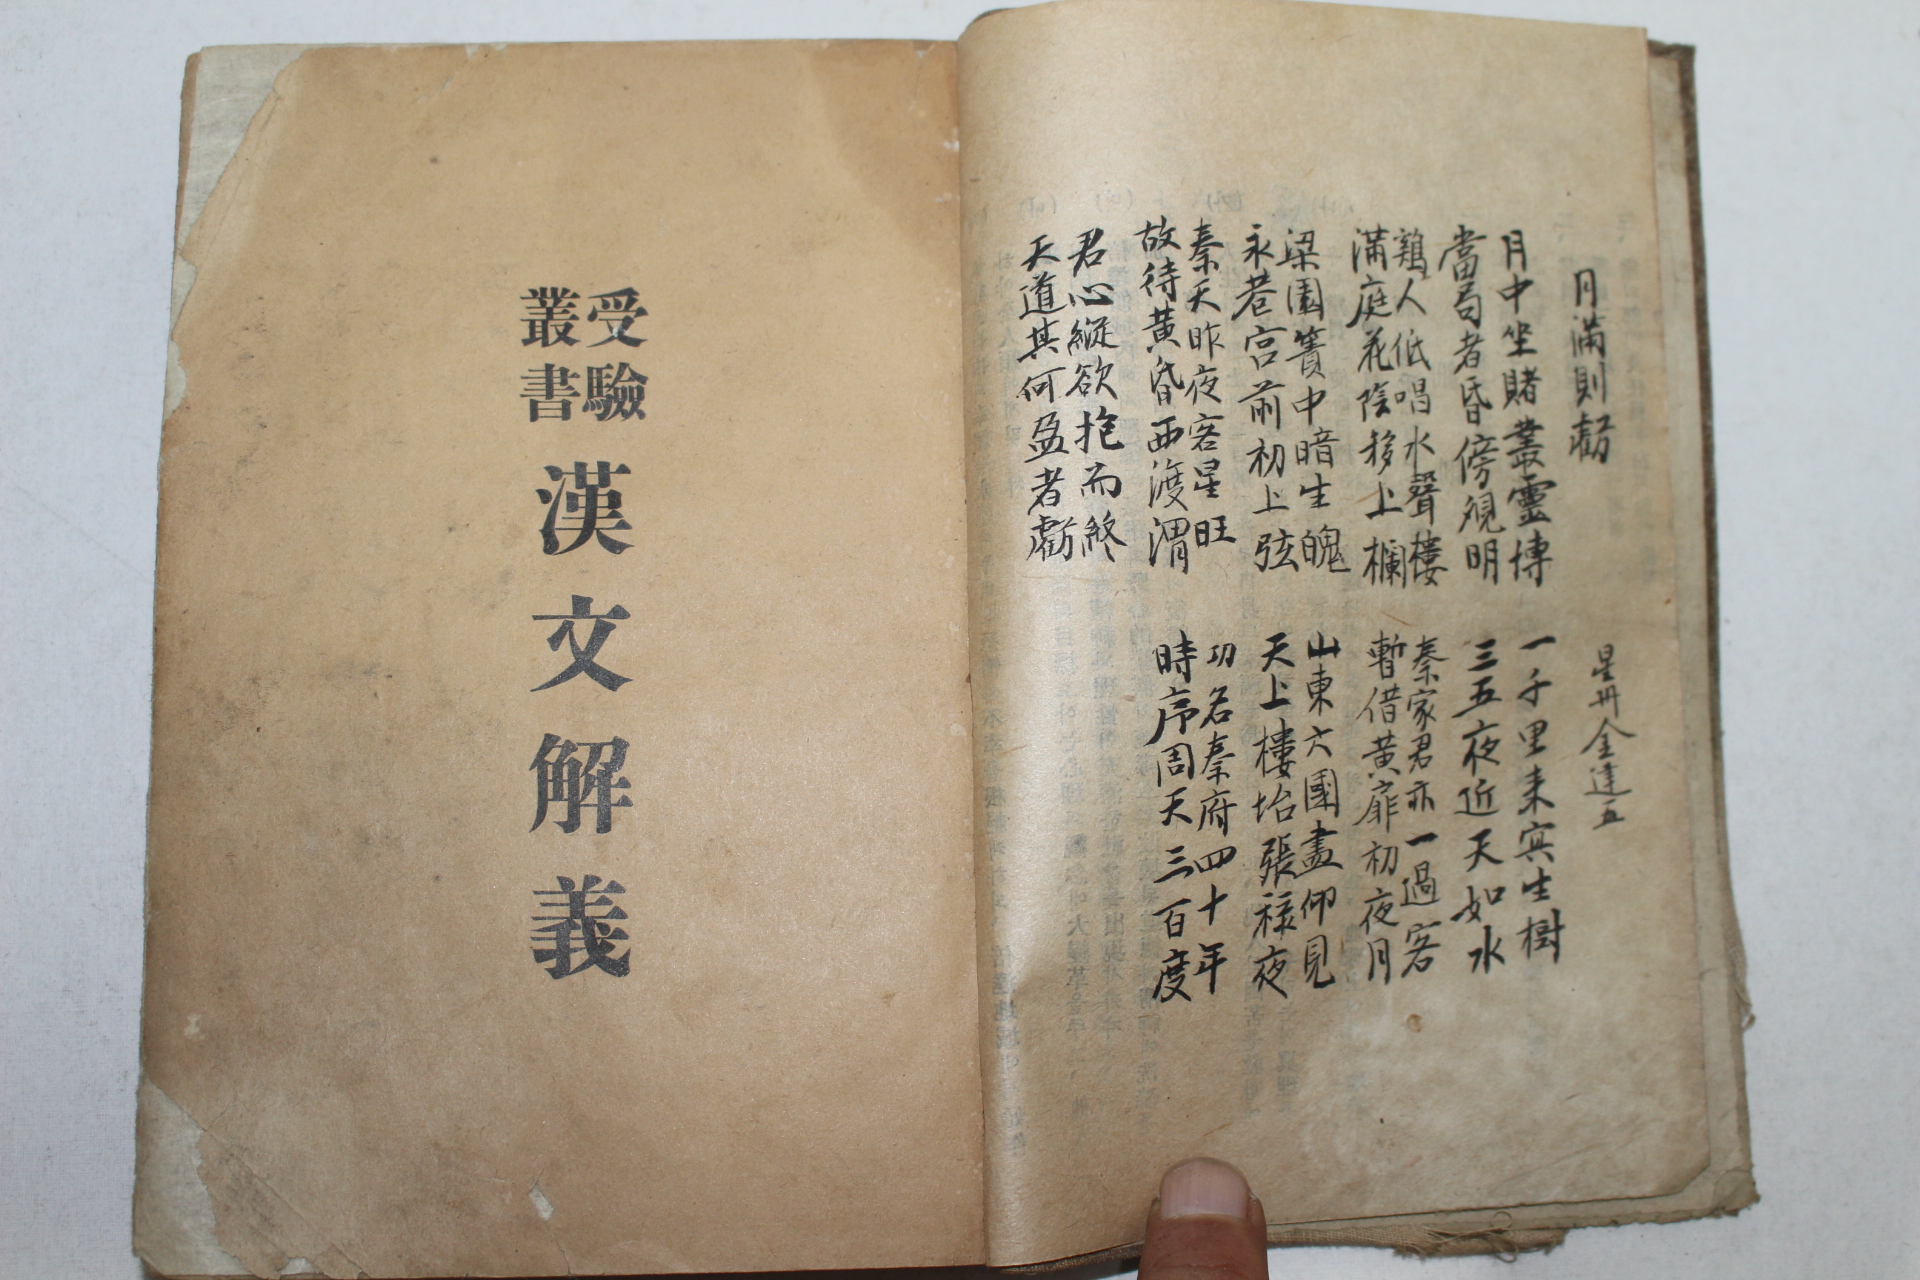 月滿則虧
星州金達五
月中坐賭叢靈博
當局者昏傍覌明
一千里来宾生樹
三五夜近天如水
鷄人低唱水聲樓
滿庭花陰移上欄
秦家君亦一過客
暫借黃扉初夜月
梁園簀中暗生魄
永巷宮前初上弦
山東六國盡仰見
天上樓坮張祿夜
秦天昨夜客星旺
故待黃昏西渡渭
功名秦府四十年
時序周天三百度
君心縱欲抱而終
天道其何盈者虧
受驗
叢書
漢文解義